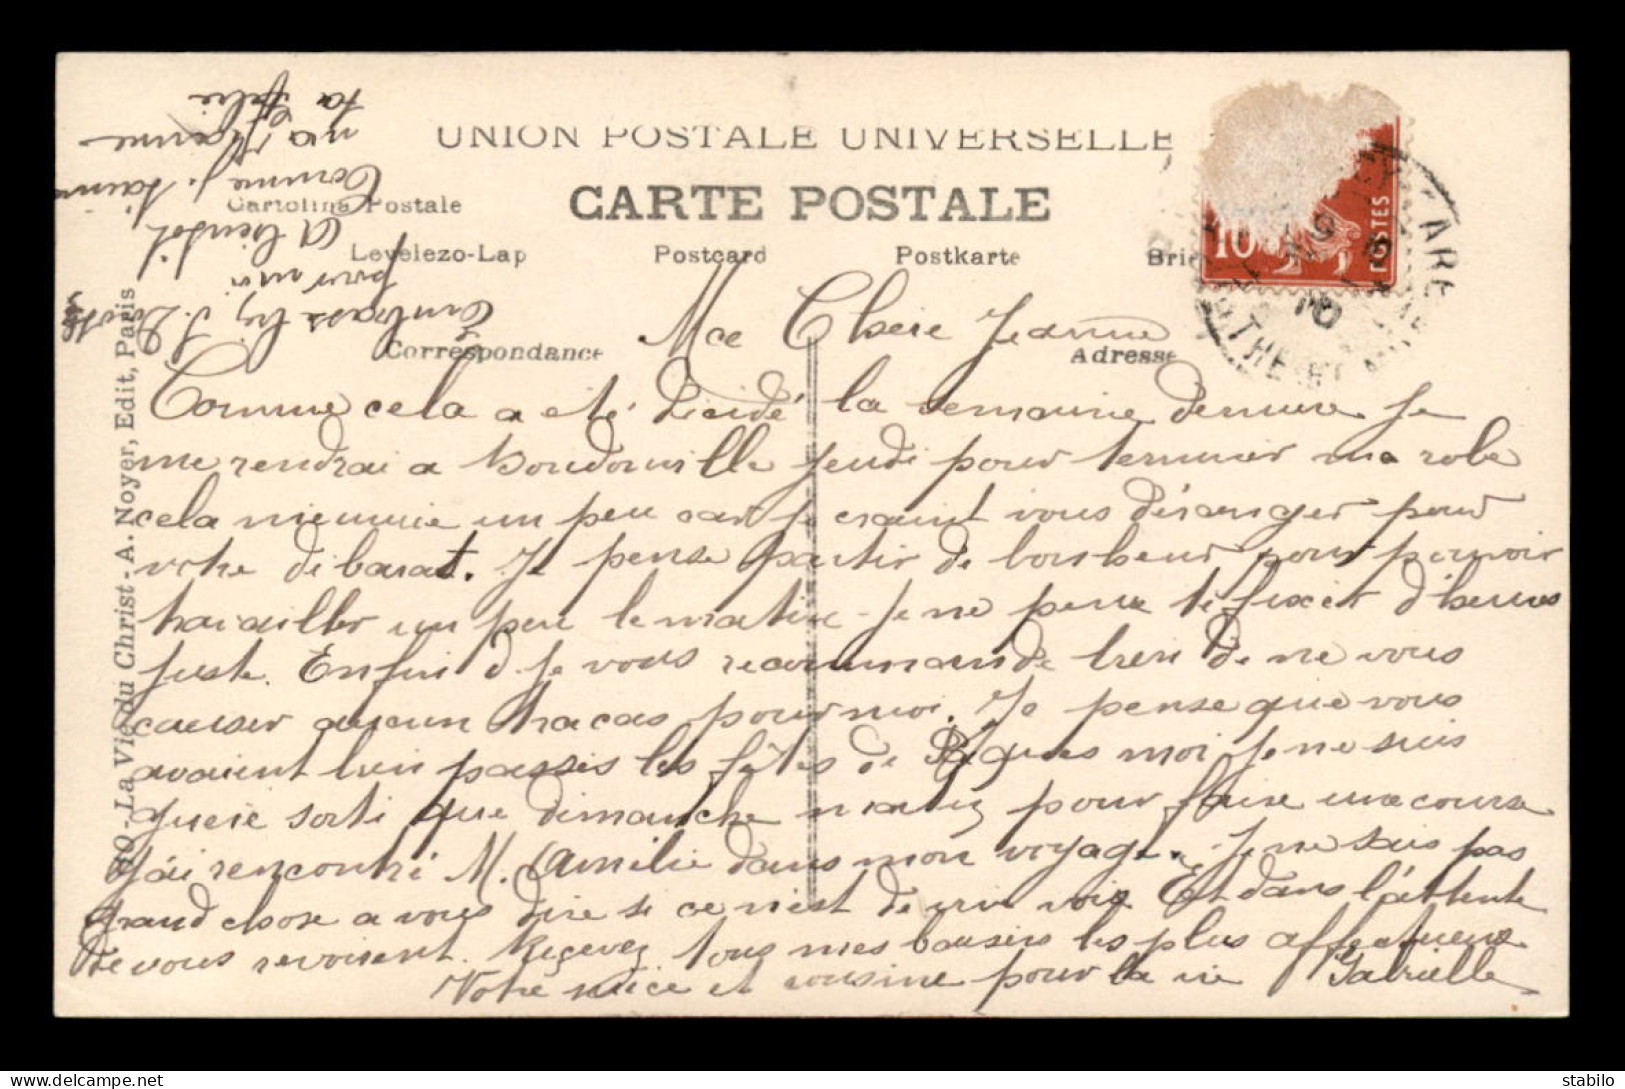 UNION POSTALE UNIVERSELLE
CARTE POSTALE
Cartolina Postale
Levelezo-Lap Postcard Postkarte
Correspondance Adresse
10
POSTES
GARE
10
90 - La Vie du Christ - A. Noyer, Edit, Paris
Embrassez
pour moi
A bientôt
Comme j.
ma
ta
Mce Chere Jeanne
Comme cela a eté décidé la semaine derniere Je
me rendrai a Boudonville jeudi pour terminer ma robe
cela m'ennuie un peu car je craint vous déranger pour
votre débaras. Je pense partir de bonheur pour pouvoir
travailler un peu le matin. Je ne peux te fixer d'heures
juste. Enfin je vous recommande bien de ne vous
causer aucun tracas pour moi. Je pense que vous
avaient bien passés les fêtes de Pâques moi je ne suis
guere sorti que dimanche matin pour faire une course
J'ai rencontré M. Camille dans mon voyage. Je ne sais pas
grand chose a vous dire si ce n'est de vous voir. Et dans l'attente
de vous revoirent. Reçevez tous mes baisers les plus affectueux
Votre niece et cousine pour la vie Gabrielle
stabilo